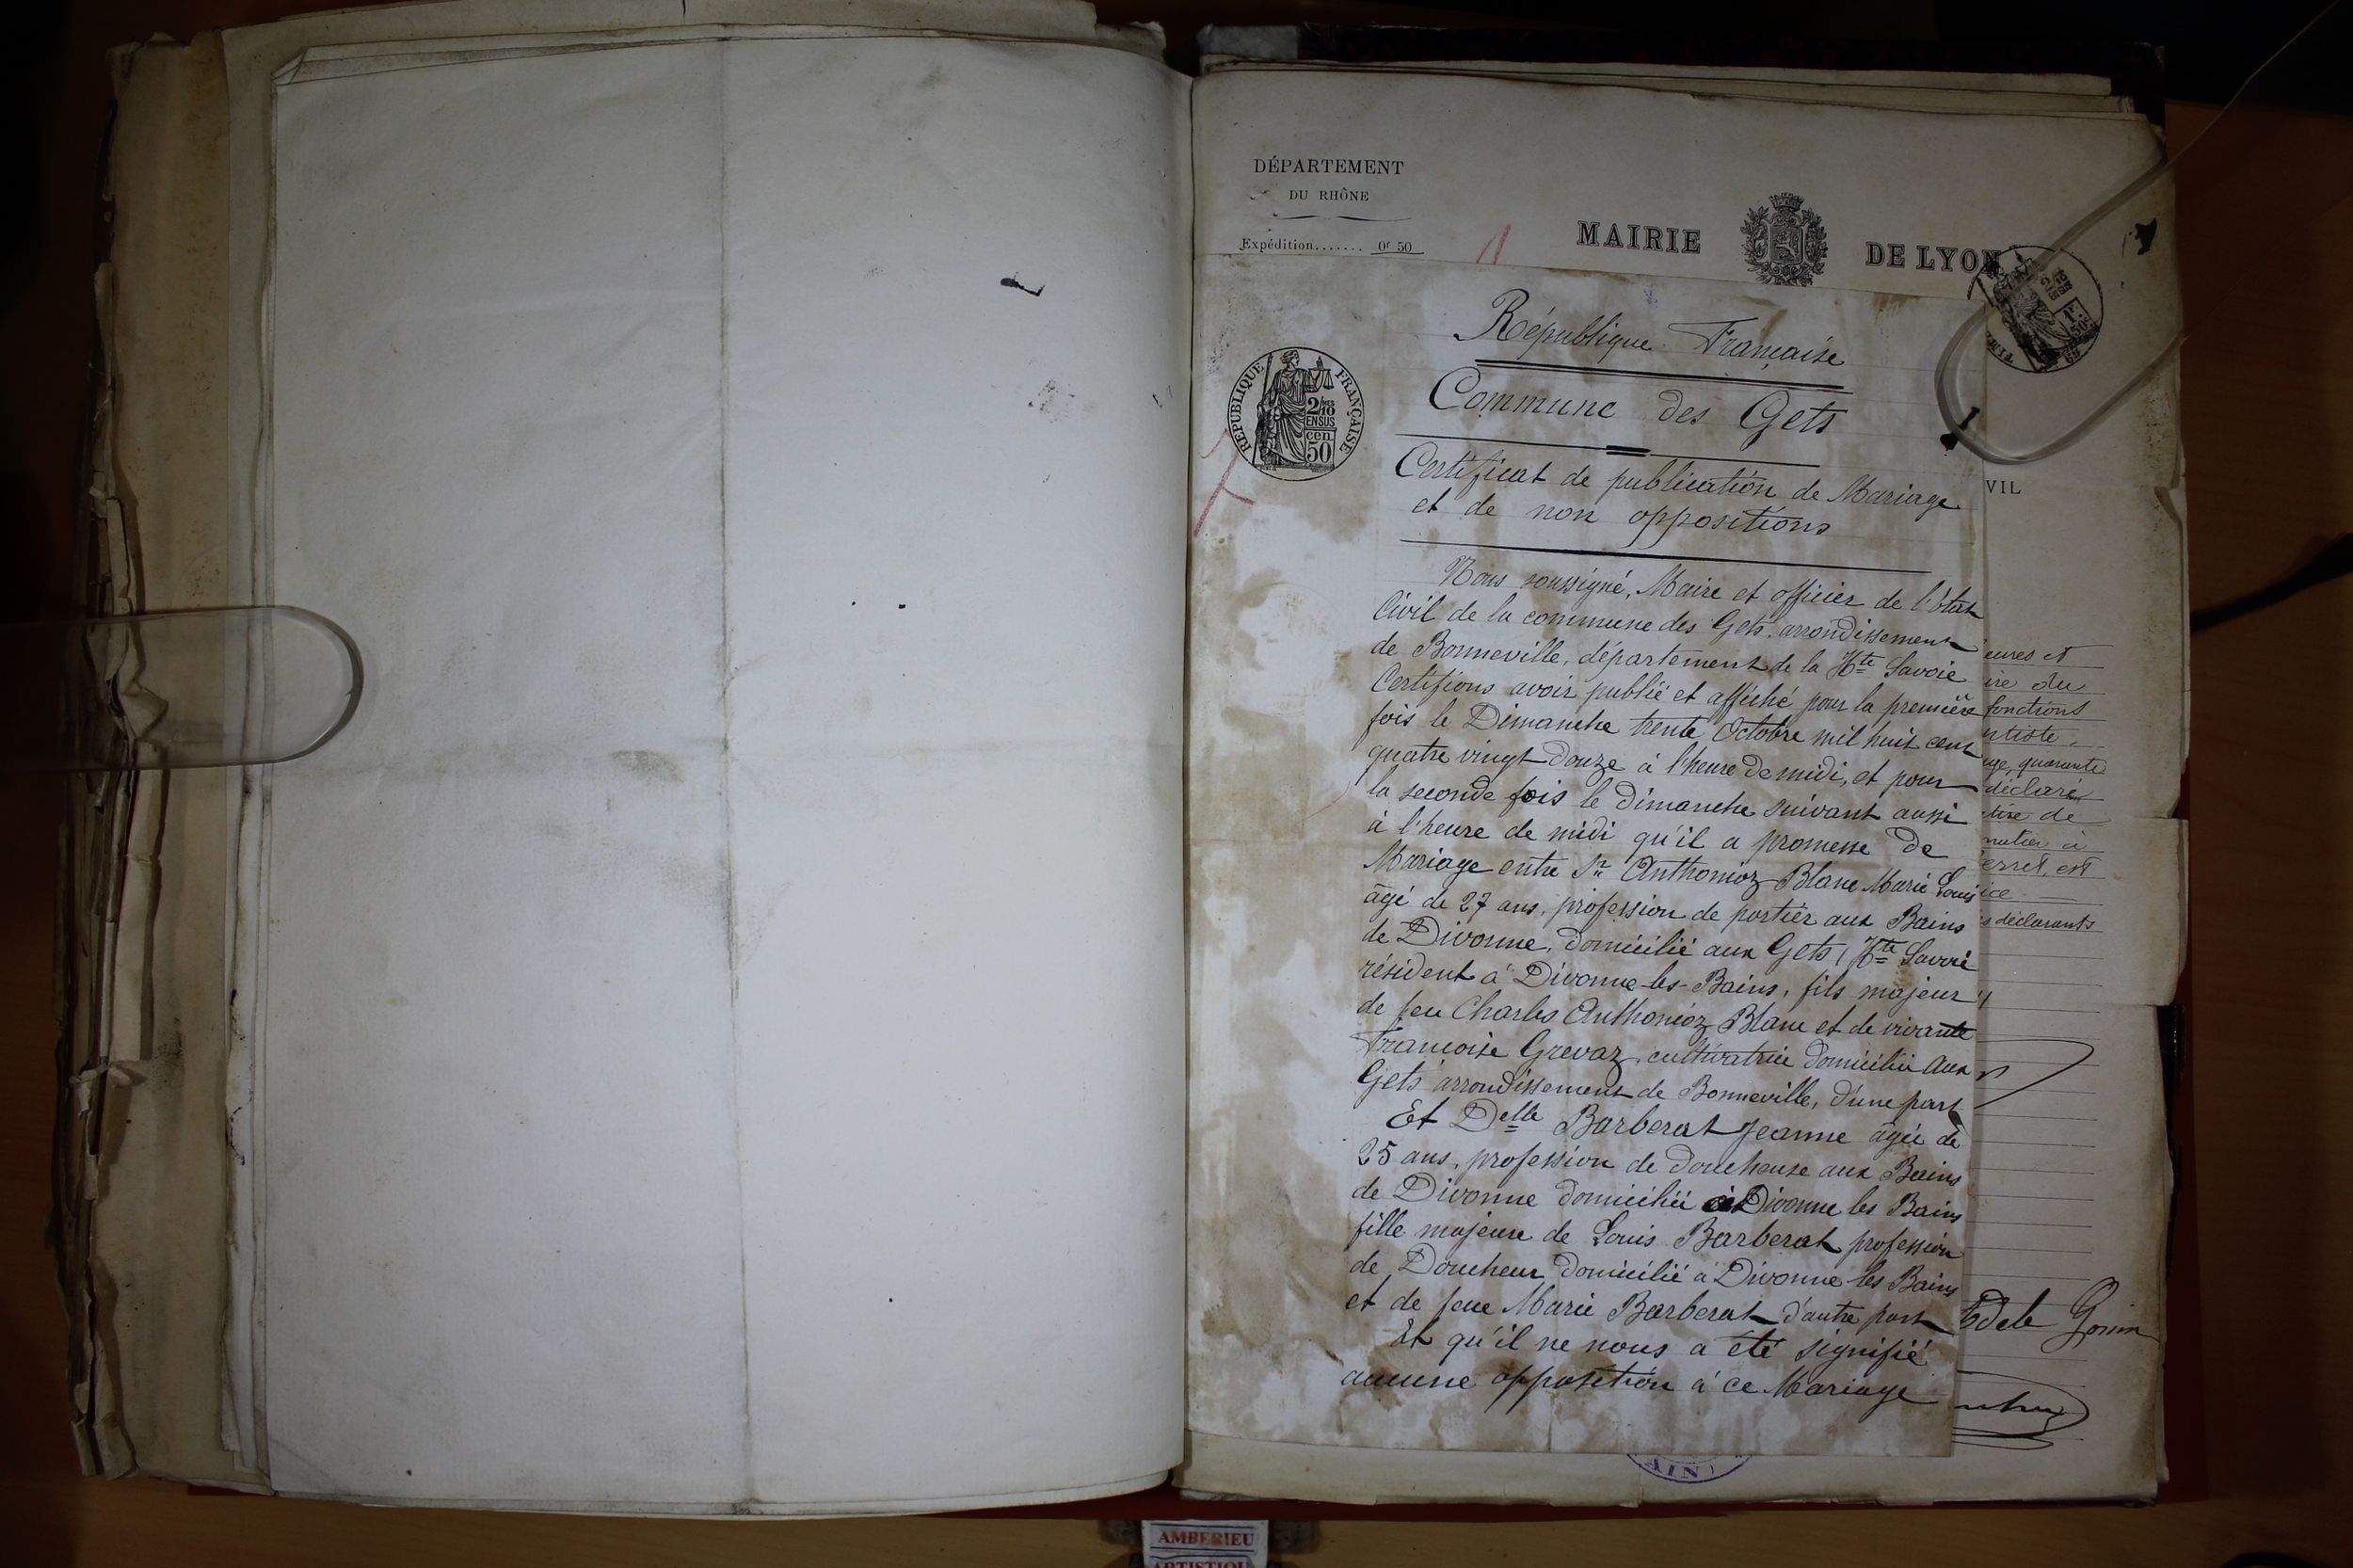 DÉPARTEMENT
DU RHÔNE
Expédition....... 0f 50
MAIRIE DE LYON
République Française
REPUBLIQUE FRANÇAISE
2/10 EN SUS
cen 50
Commune des Gets
Certificat de publication de Mariage
et de non oppositions
Nous soussigné, Maire et officier de l'état
Civil de la commune des Gets, arrondissement
de Bonneville, département de la Hte Savoie
Certifions avoir publié et affiché pour la première
fois le Dimanche trente Octobre mil huit cent
quatre vingt Douze à l'heure De midi, et pour
la seconde fois le Dimanche suivant aussi
à l'heure de midi qu'il a promesse De
Mariage entre Sr Anthonioz Blanc Marie Louis
âgé de 27 ans, profession de portier aux Bains
de Divonne, Domicilié aux Gets (Hte Savoie
résident à Divonne-les-Bains, fils majeur
de feu Charles Anthonioz Blanc et de vivante
Françoise Grevaz, cultivatrice Domiciliée aux
Gets arrondissement de Bonneville, D'une part
Et Delle Barberat Jeanne âgée de
25 ans, profession de Doucheuse aux Bains
de Divonne Domiciliée à Divonne les Bains
fille majeure de Louis Barberat profession
de Doucheur Domicilié à Divonne les Bains
et de feue Marie Barberat D'autre part
Et qu'il ne nous a été signifié
aucune opposition à ce Mariage
VIL
eures et
ire du
fonctions
ntiste
age, quarante
déclaré
erret, est
ice
s déclarants
Gonin
AIN
AMBERIEU